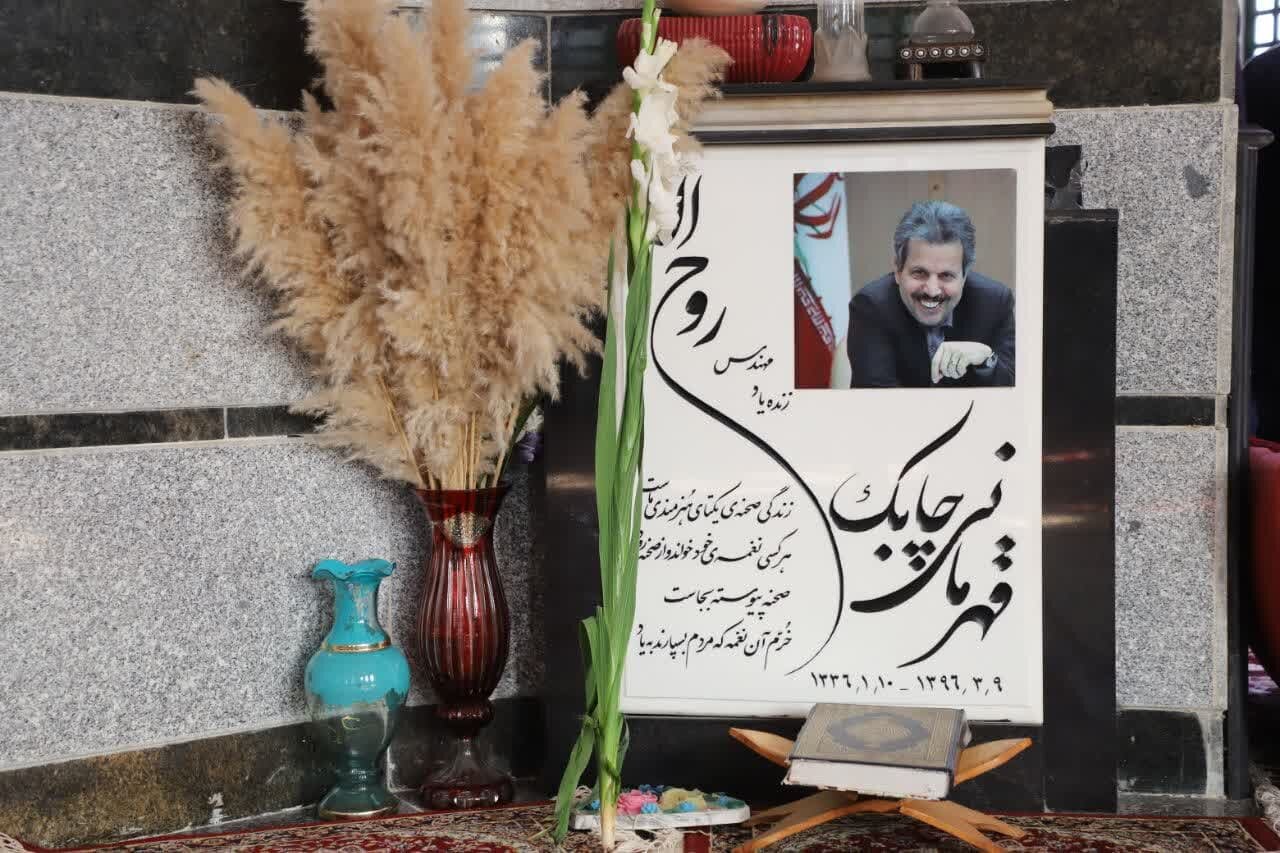 روح ال
مهندس
زنده یاد
قهرمانی چابک
زندگی صحنه ی یکتای هنرمندی ماست
هرکسی نغمه ی خود خواند و از صحنه رود
صحنه پیوسته بجاست
خرّم آن نغمه که مردم بسپارند به یاد
۱۳۳۶٫۱٫۱۰ - ۱۳۹۶٫۳٫۹